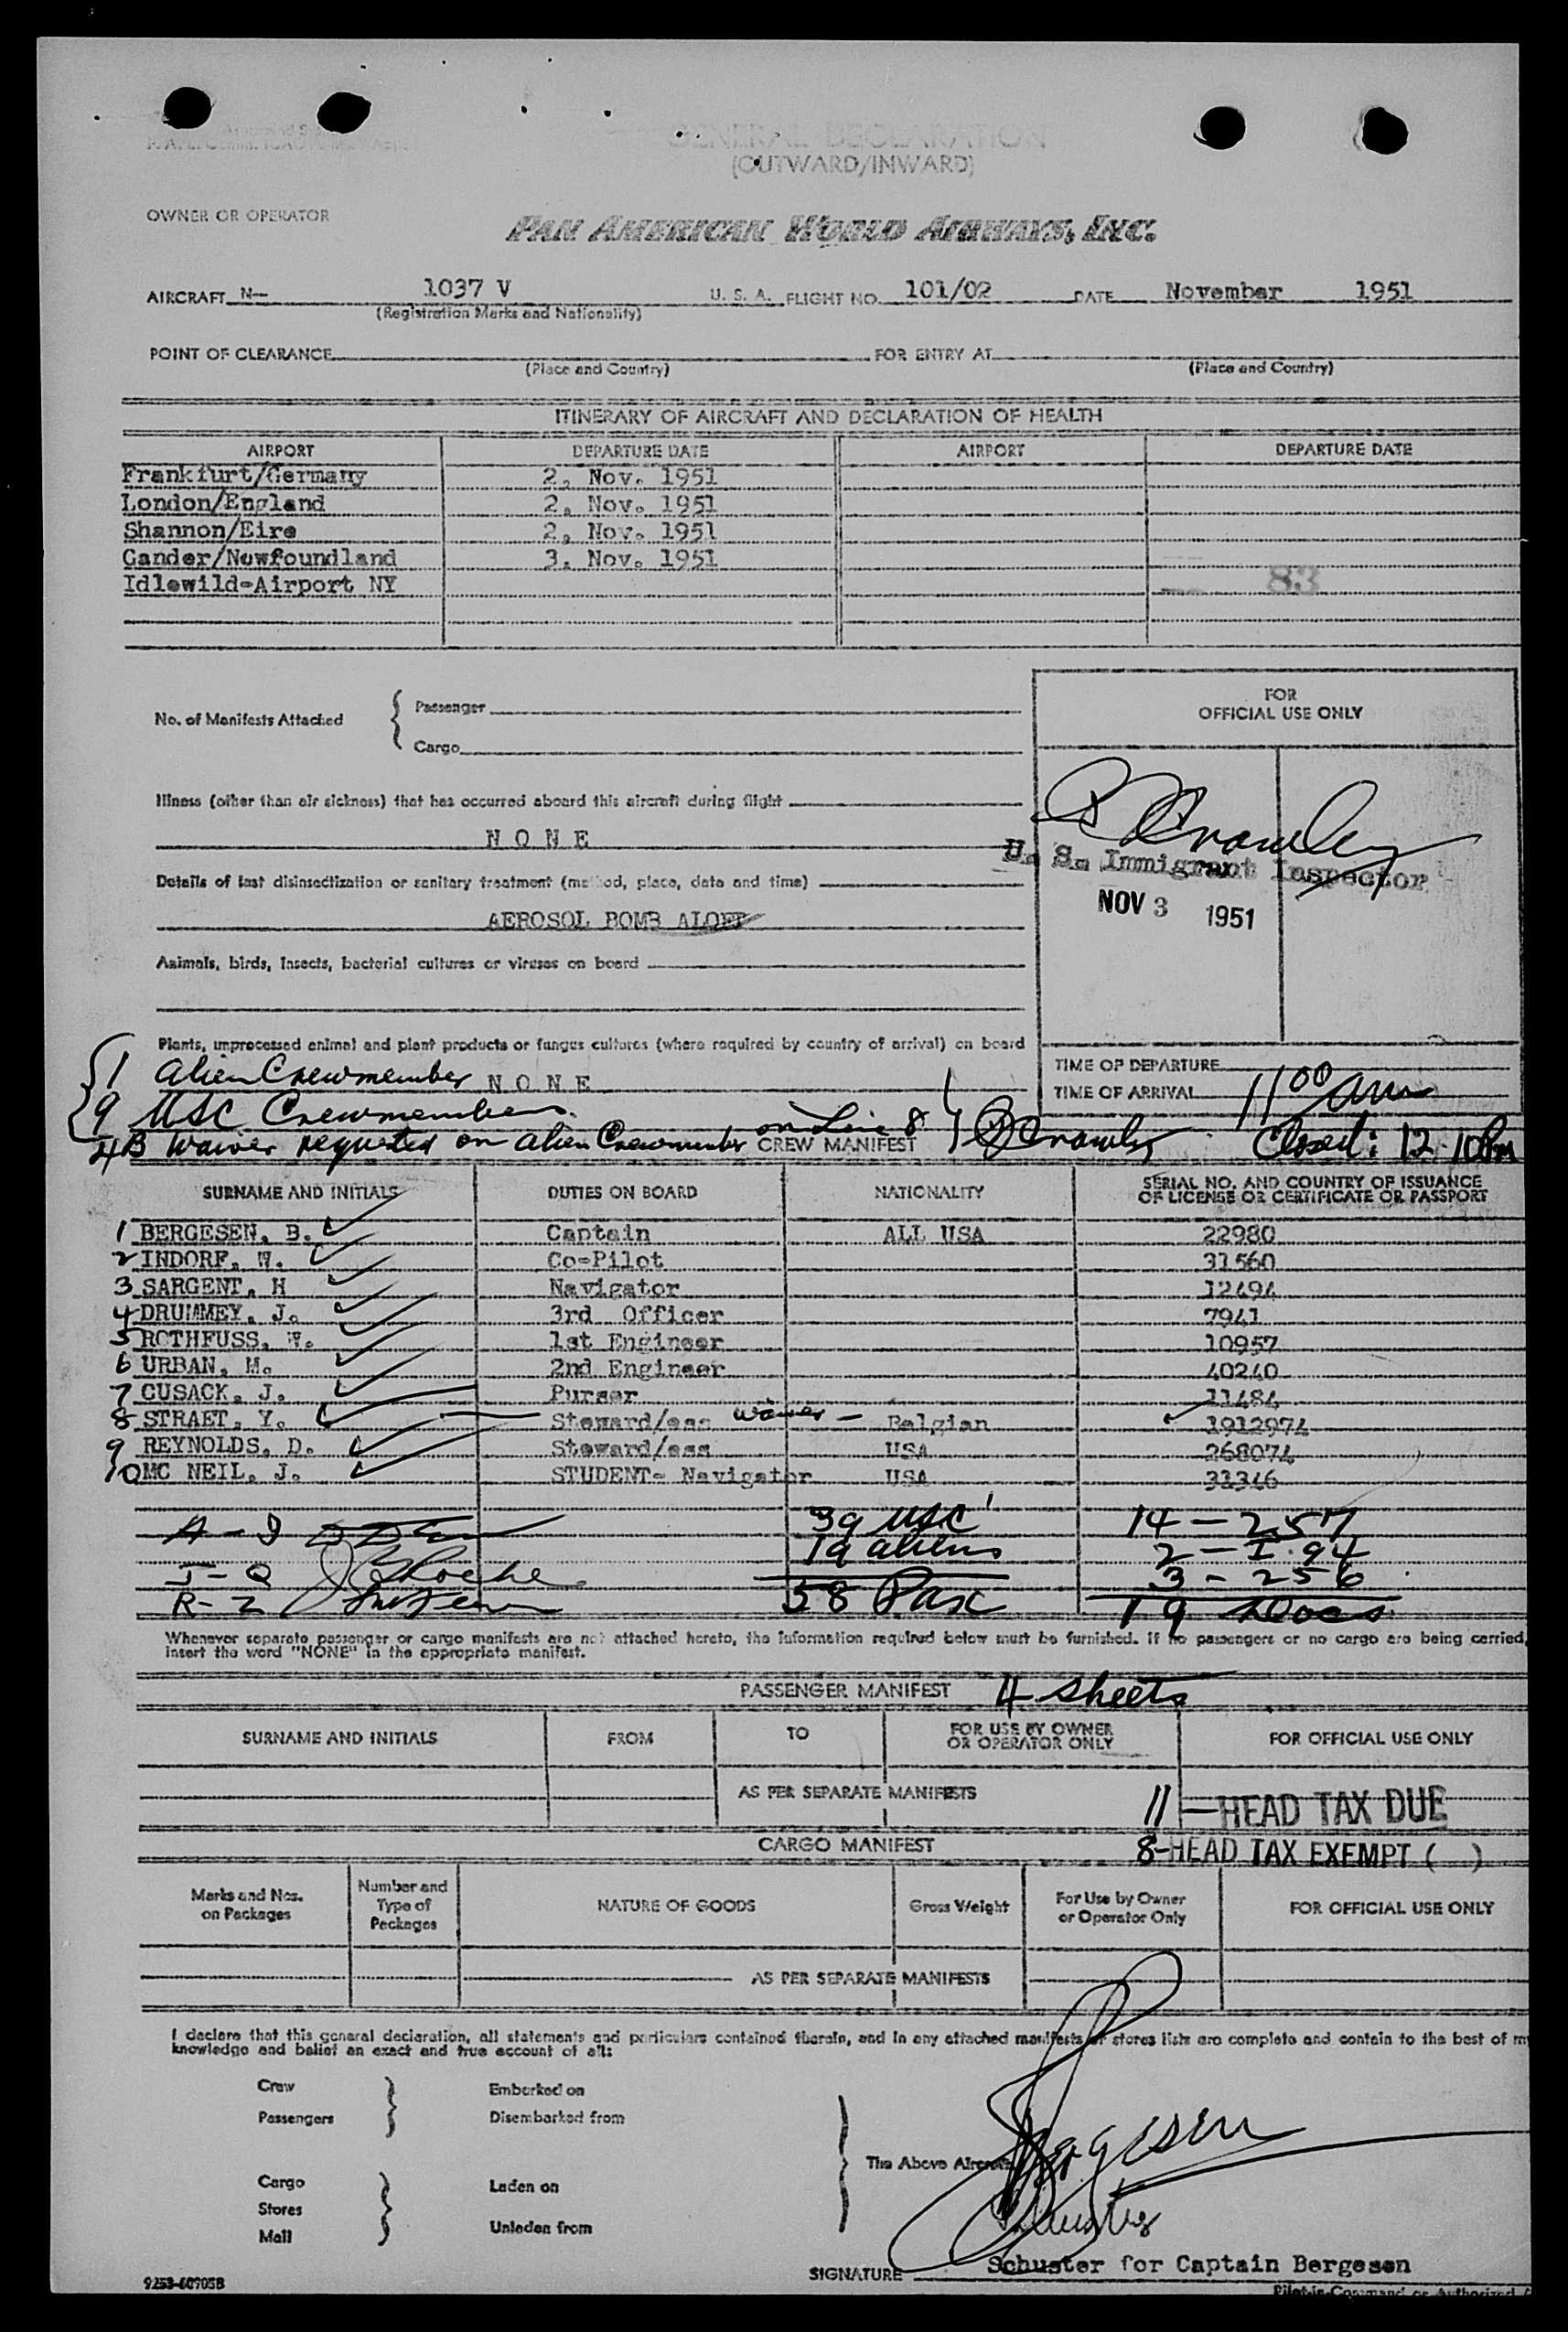 GENERAL DECLARATION
(OUTWARD/INWARD)
OWNER OR OPERATOR
PAN AMERICAN WORLD AIRWAYS, INC.
AIRCRAFT N— 1037 V U. S. A. FLIGHT NO. 101/02 DATE November 1951
(Registration Marks and Nationality)
POINT OF CLEARANCE FOR ENTRY AT
(Place and Country) (Place and Country)
ITINERARY OF AIRCRAFT AND DECLARATION OF HEALTH
AIRPORT DEPARTURE DATE AIRPORT DEPARTURE DATE
Frankfurt/Germany 2. Nov. 1951
London/England 2. Nov. 1951
Shannon/Eire 2. Nov. 1951
Gander/Newfoundland 3. Nov. 1951
Idlewild-Airport NY 83
FOR
OFFICIAL USE ONLY
No. of Manifests Attached
Passenger
Cargo
Illness (other than air sickness) that has occurred aboard this aircraft during flight
N O N E
U. S. Immigrant Inspector
NOV 3 1951
Details of last disinsectization or sanitary treatment (method, place, date and time)
AEROSOL BOMB ALOFT
Animals, birds, insects, bacterial cultures or viruses on board
Plants, unprocessed animal and plant products or fungus cultures (where required by country of arrival) on board
TIME OF DEPARTURE
TIME OF ARRIVAL 11 00 am
1 alien Crewmember N O N E
9 USC Crewmembers
4B Waiver requested on alien Crewmember on Line 8 Crawley Closed: 12.10 Pm
CREW MANIFEST
SURNAME AND INITIALS DUTIES ON BOARD NATIONALITY SERIAL NO. AND COUNTRY OF ISSUANCE OF LICENSE OR CERTIFICATE OR PASSPORT
1 BERGESEN, B. Captain ALL USA 22980
2 INDORF, W. Co-Pilot 31560
3 SARGENT, H Navigator 12494
4 DRUMMEY, J. 3rd Officer 7941
5 ROTHFUSS, W. 1st Engineer 10957
6 URBAN, M. 2nd Engineer 40240
7 CUSACK, J. Purser 11484
8 STRAET, Y. Steward/ess waiver — Belgian 1912974
9 REYNOLDS, D. Steward/ess USA 268074
10 MC NEIL, J. STUDENT- Navigator USA 31346
39 USC 14 — 257
A - I 19 aliens 2 — I.94
J - Q 3 - 256
R - Z 58 Pax 19 Docs
Whenever separate passenger or cargo manifests are not attached hereto, the information required below must be furnished. If no passengers or no cargo are being carried,
insert the word "NONE" in the appropriate manifest.
PASSENGER MANIFEST 4 sheets
SURNAME AND INITIALS FROM TO FOR USE BY OWNER OR OPERATOR ONLY FOR OFFICIAL USE ONLY
AS PER SEPARATE MANIFESTS
11 — HEAD TAX DUE
CARGO MANIFEST
8-HEAD TAX EXEMPT ( )
Marks and Nos. on Packages Number and Type of Packages NATURE OF GOODS Gross Weight For Use by Owner or Operator Only FOR OFFICIAL USE ONLY
AS PER SEPARATE MANIFESTS
I declare that this general declaration, all statements and particulars contained therein, and in any attached manifests or stores lists are complete and contain to the best of my
knowledge and belief an exact and true account of all:
Crew Embarked on
Passengers Disembarked from
The Above Aircraft
Cargo Laden on
Stores
Mail Unladen from
SIGNATURE Schuster for Captain Bergesen
9253-60705B
Pilot-in-Command or Authorized